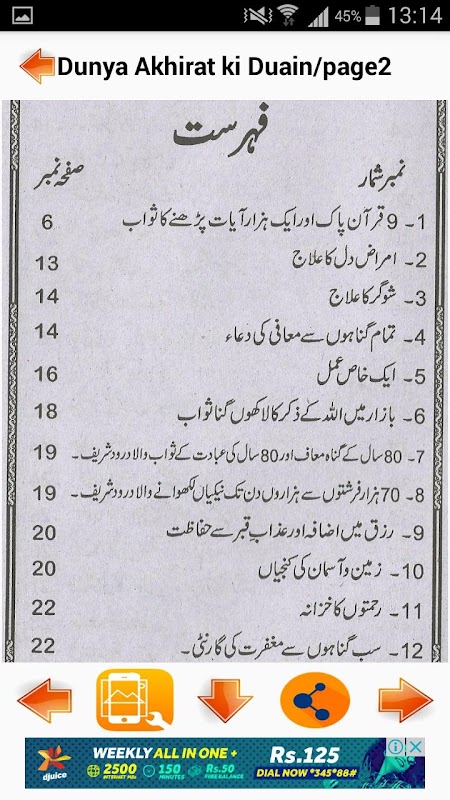 45% 13:14
Dunya Akhirat ki Duain/page2
فہرست
نمبر شمار صفحہ نمبر
1۔ 9 قرآن پاک اور ایک ہزار آیات پڑھنے کا ثواب 6
2۔ امراض دل کا علاج 13
3۔ شوگر کا علاج 14
4۔ تمام گناہوں سے معافی کی دعاء 14
5۔ ایک خاص عمل 16
6۔ بازار میں اللہ کے ذکر کا لاکھوں گنا ثواب 18
7۔ 80 سال کے گناہ معاف اور 80 سال کی عبادت کے ثواب والا درود شریف۔ 19
8۔ 70 ہزار فرشتوں سے ہزاروں دن تک نیکیاں لکھوانے والا درود شریف۔ 19
9۔ رزق میں اضافہ اور عذاب قبر سے حفاظت 20
10۔ زمین و آسمان کی کنجیاں 20
11۔ رحمتوں کا خزانہ 22
12۔ سب گناہوں سے مغفرت کی گارنٹی۔ 22
djuice
WEEKLY ALL IN ONE +
2500 INTERNET MBs 150 MINUTES Rs.50 FREE BALANCE
Rs.125
DIAL NOW *345*88#